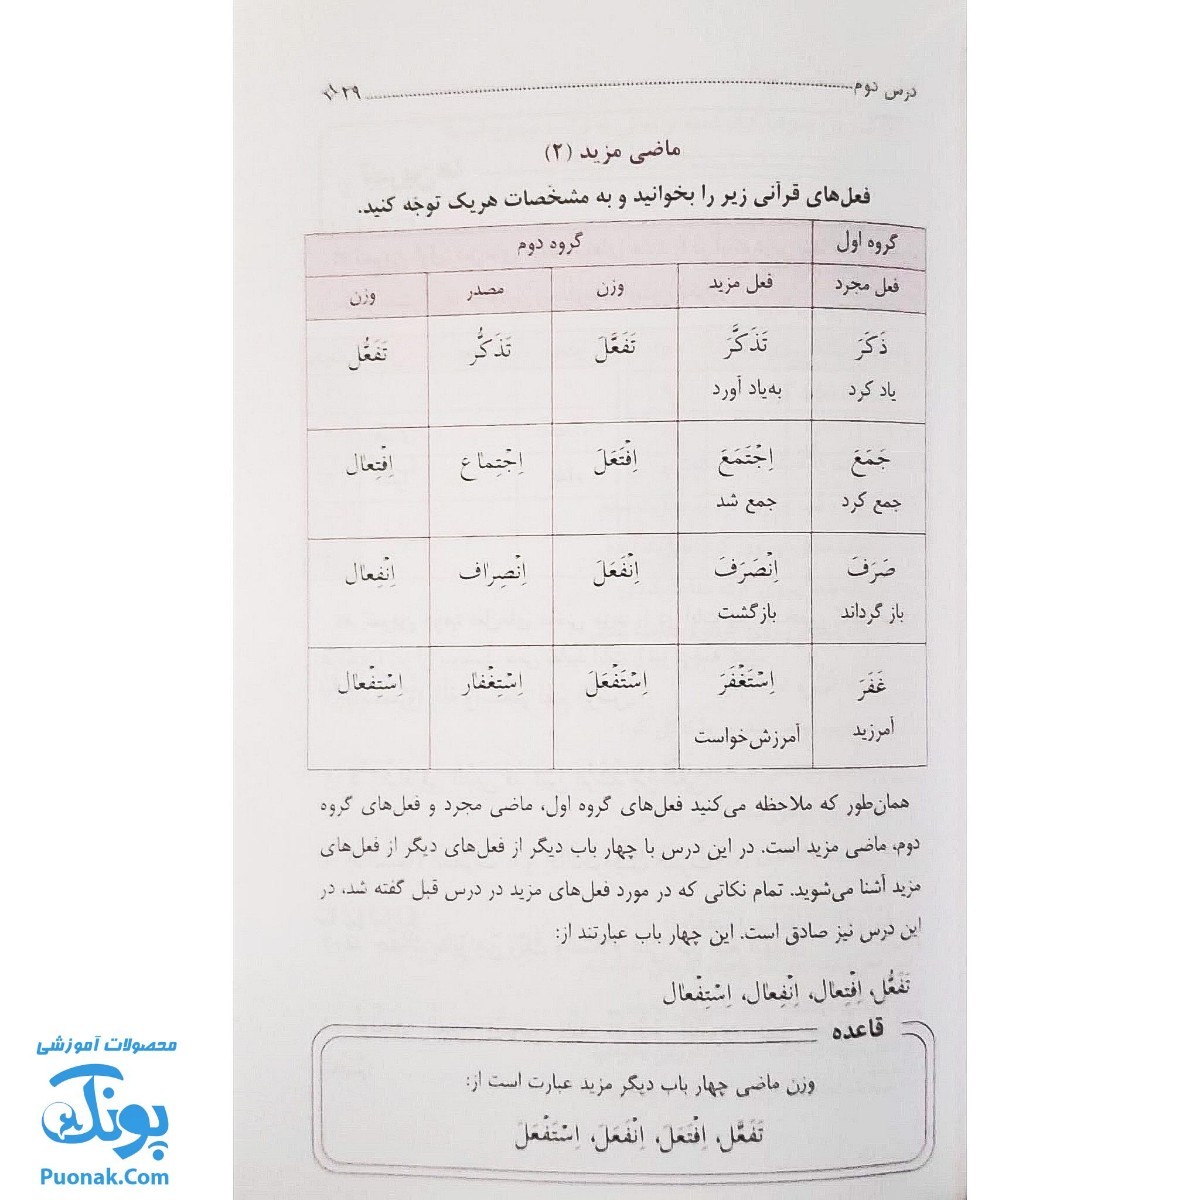 درس دوم ۲۹
ماضی مزید (۲)
فعل‌های قرآنی زیر را بخوانید و به مشخصات هریک توجه کنید.
گروه اول گروه دوم
فعل مجرد فعل مزید وزن مصدر وزن
ذَكَرَ تَذَكَّرَ تَفَعَّلَ تَذَكُّر تَفَعُّل
یاد کرد به‌یاد آورد
جَمَعَ اِجْتَمَعَ اِفْتَعَلَ اِجْتِماع اِفْتِعال
جمع کرد جمع شد
صَرَفَ اِنْصَرَفَ اِنْفَعَلَ اِنْصِراف اِنْفِعال
باز گرداند بازگشت
غَفَرَ اِسْتَغْفَرَ اِسْتَفْعَلَ اِسْتِغْفار اِسْتِفْعال
آمرزید آمرزش‌خواست
همان‌طور که ملاحظه می‌کنید فعل‌های گروه اول، ماضی مجرد و فعل‌های گروه
دوم، ماضی مزید است. در این درس با چهار باب دیگر از فعل‌های دیگر از فعل‌های
مزید آشنا می‌شوید. تمام نکاتی که در مورد فعل‌های مزید در درس قبل گفته شد، در
این درس نیز صادق است. این چهار باب عبارتند از:
تَفَعُّل، اِفْتِعال، اِنْفِعال، اِسْتِفْعال
قاعده
وزن ماضی چهار باب دیگر مزید عبارت است از:
تَفَعَّلَ، اِفْتَعَلَ، اِنْفَعَلَ، اِسْتَفْعَلَ
محصولات آموزشی
پونک
Puonak.Com